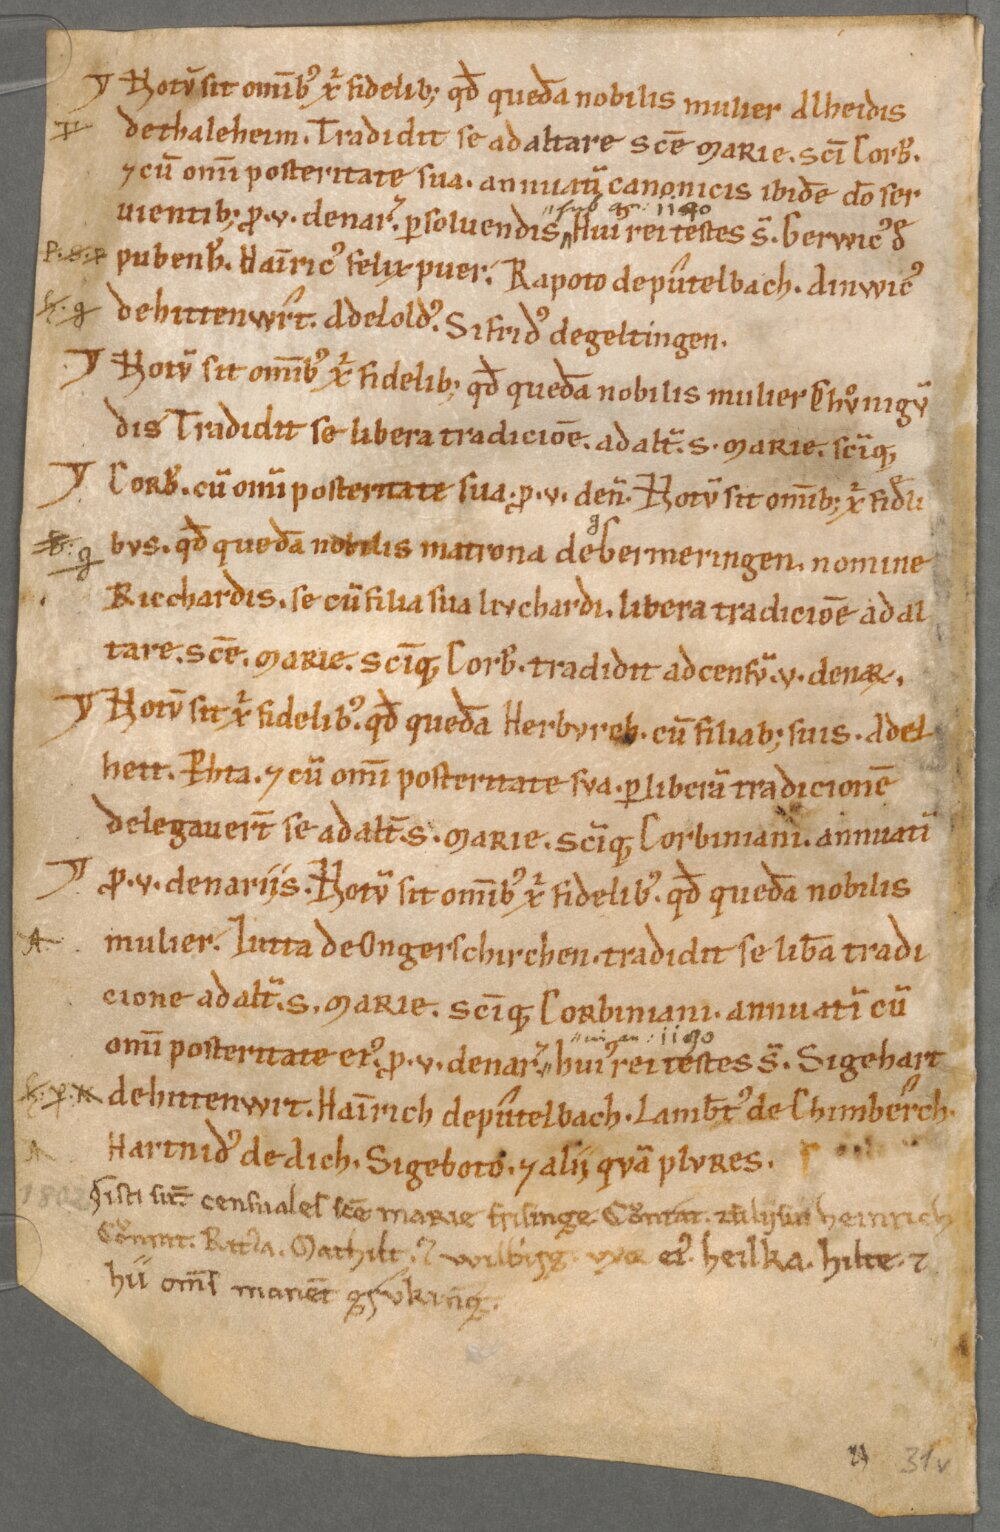 Notū sit omībꝰ xp̄i fidelib; qđ quedā nobilis mulier Alheidis
dethaleheim. Tradidit se ad altare scē MARIE. scī Corb̄.
⁊ cū om̄i posteritate sua. annuatī canonicis ibidē dō ser
uientib; ꝓ .v. denar̄. ꝑsoluendis. Hui rei testes s̄. Gerwicꝰ đ
pubenh̄. Hainricꝰ felix puer. Rapoto depūtelbach. Ainwicꝰ
dehittenwrt̄. Adeloldꝰ. Sifridꝰ degeltingen.
Notū sit om̄ibꝰ xp̄i fidelib; qđ quedā nobilis mulier Chůnigū
dis Tradidit se libera tradicioē. ad alt̄. s. MARIE. scīq,
Corb̄. cū om̄i posteritate sua. ꝓ .v. den̄. Notū sit om̄ib; xp̄i fidli
bus. qđ quedā nobilis matrona de germeringen. nomine
Ricchardis. se cū filia sua livchardi. libera tradicioē ad al
tare. scē. MARIE. scīq, Corb̄. tradidit ad censū .v. denar.
Notū sit xp̄i fidelibꝰ. qđ quedā Herbvrch. cū filiab; suis. Adel
heit. ⁊ cū om̄i posteritate sva. ꝑ liberā tradicionē
delegauer̄t se ad alt̄. s. MARIE. scīq, Corbiniani. annuatī
ꝓ .v. denarijs. Notū sit om̄ibꝰ xp̄i fidelibꝰ. qđ quedā nobilis
mulier. Iutta de Ongerschirchen. tradidit se lib̄a tradi
cione ad alt̄. s. MARIE. scīq, Corbiniani. annuatī cū
om̄i posteritate eiꝰ. ꝓ .v. denar̄. huiꝰ rei testes s̄. Sigehart
dehittenwrt. Hainrich depūtelbach. Lamb̄tꝰ de Chimberch.
Hartnidꝰ de dich. Sigeboto. ⁊ alij quā plvres.
isti sūt censuales scē MARIE frisinge. Cōnrat. heinrich
Cōnrat. Mathilt. ⁊ willbirg. eiꝰ. heilka. hilte. ⁊
hii om̄s manēt
31v